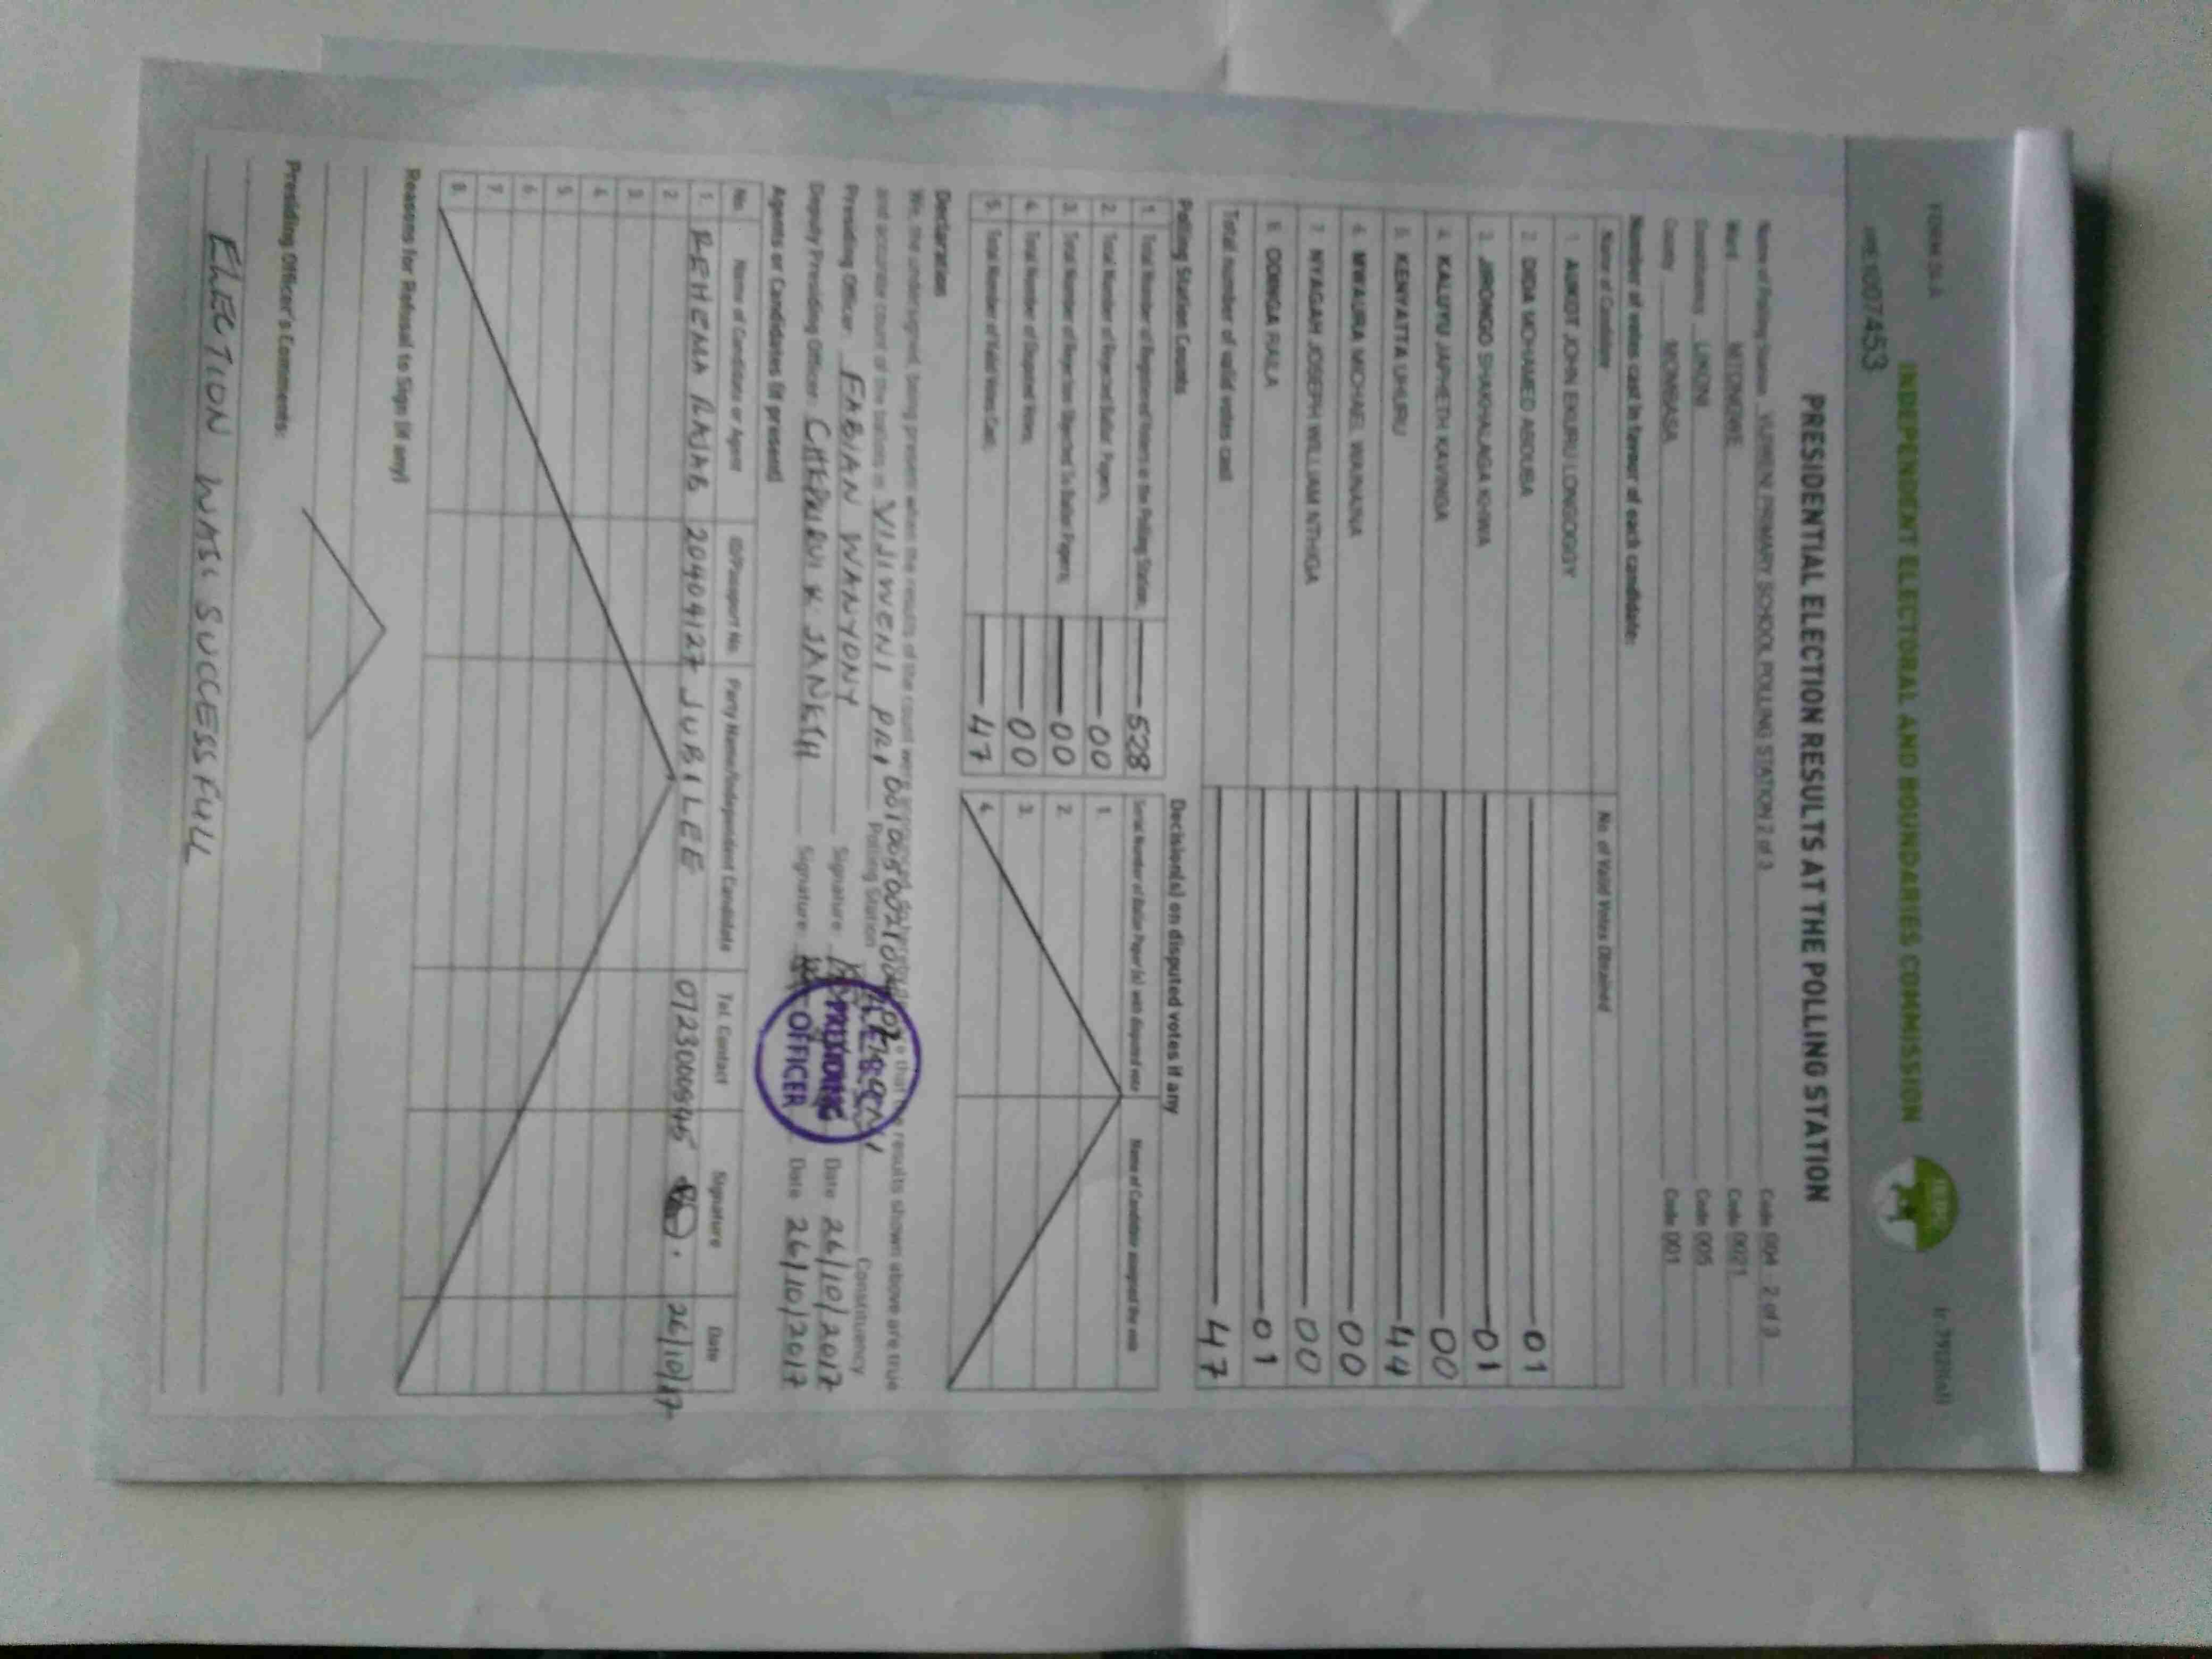 FORM 34A
INDEPENDENT ELECTORAL AND BOUNDARIES COMMISSION
IEBC
PRESIDENTIAL ELECTION RESULTS AT THE POLLING STATION
Name of Polling Station VIJIWENI PRIMARY SCHOOL POLLING STATION 2 of 3 Code 004 - 2 of 3
Ward MTONGWE Code 0021
Constituency LIKONI Code 005
County MOMBASA Code 001
Number of votes cast in favour of each candidate:
Name of Candidate No. of Valid Votes Obtained
1. AUKOT JOHN EKURU LONGOGGY
2. DIDA MOHAMED ABDUBA 01
3. JIRONGO SHAKHALAGA KHWA 01
4. KALUYU JAPHETH KAVINGA 00
5. KENYATTA UHURU 44
6. MWAURA MICHAEL WAINAINA 00
7. NYAGAH JOSEPH WILLIAM NTHIGA 00
8. ODINGA RAILA 01
Total number of valid votes cast 47
Polling Station Counts
1. Total Number of Registered Voters in the Polling Station 528
2. Total Number of Rejected Ballot Papers 00
3. Total Number of Rejection Objected To Ballot Papers 00
4. Total Number of Disputed Votes 00
5. Total Number of Valid Votes Cast 47
Decision(s) on disputed votes if any
Serial Number of Ballot Paper (s) with disputed vote Name of Candidate assigned the vote
1.
2.
3.
4.
Declaration
We, the undersigned, being present when the results of the count were that the results shown above are true
and accurate count of the ballots in VIJIWENI PRI Polling Station Constituency
Presiding Officer FABIAN WANYONY Signature Date 26/10/2017
Deputy Presiding Officer Signature Date 26/10/2017
PRESIDING
OFFICER
Agents or Candidates (if present)
No. Name of Candidate or Agent ID/Passport No. Party Name/Independent Candidate Tel. Contact Signature Date
1. REHEMA RAJAB 20404127 JUBILEE 0723000545 26/10/17
2
3.
4.
5.
6.
7.
8.
Reasons for Refusal to Sign (if any)
Presiding Officer's Comments:
ELECTION WAS SUCCESSFULL